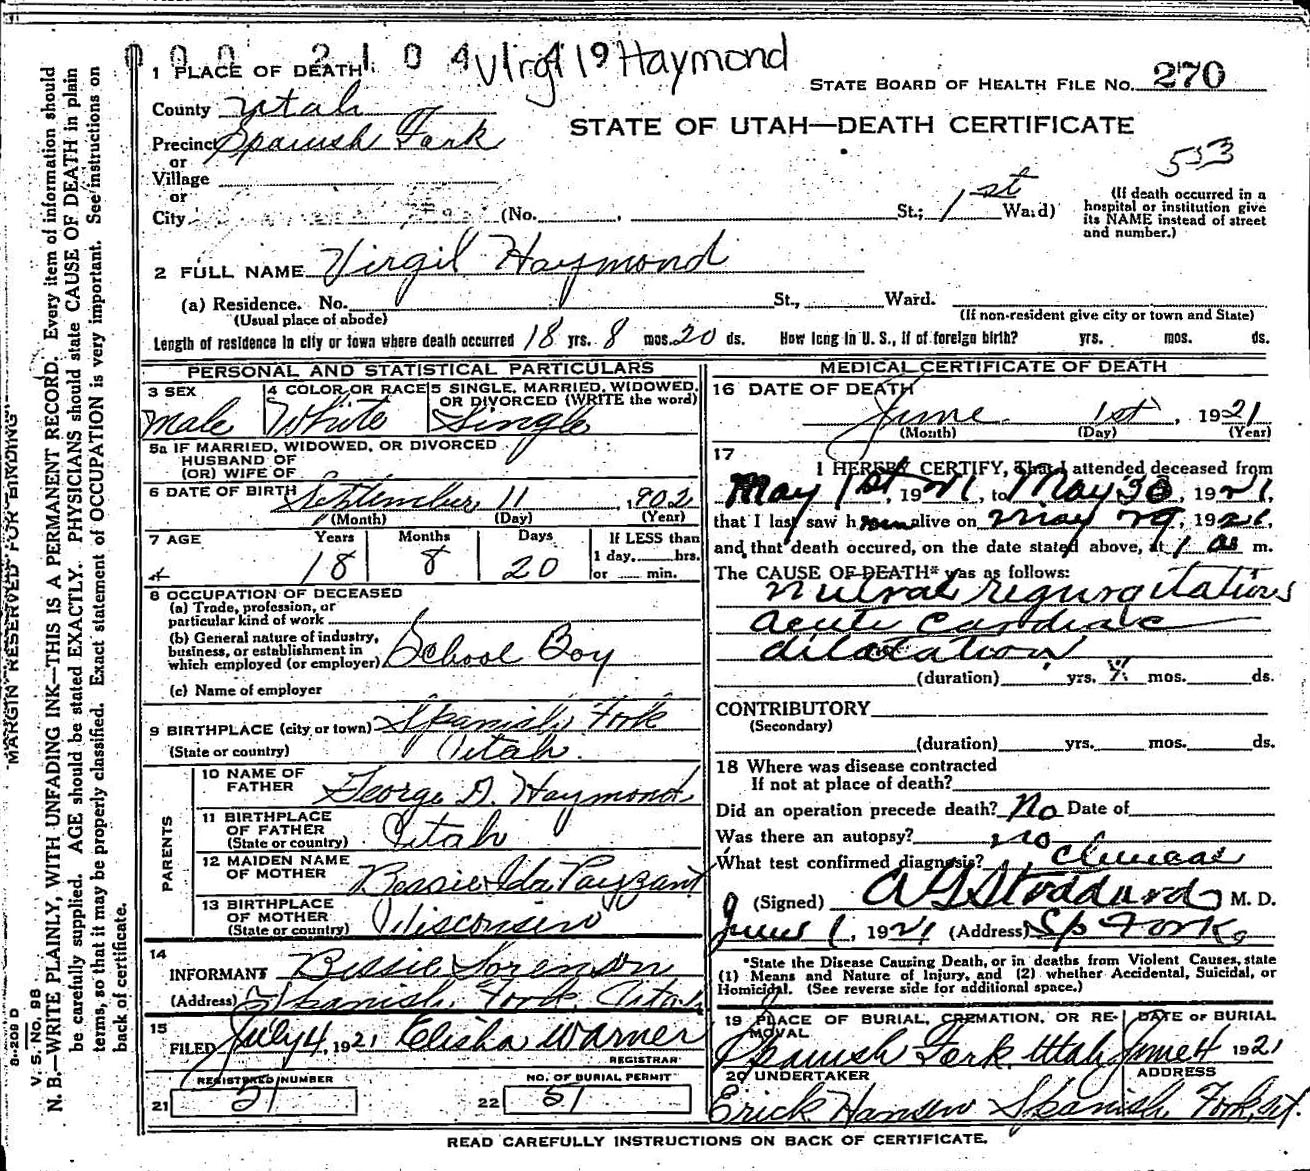 000 2104 419
Virgil Haymond
1 PLACE OF DEATH
STATE BOARD OF HEALTH FILE NO. 270
County Utah
STATE OF UTAH—DEATH CERTIFICATE
Precinct Spanish Fork
533
or
Village
or
City (No. , St.; 1st Ward)
(If death occurred in a hospital or institution give its NAME instead of street and number.)
2 FULL NAME Virgil Haymond
(a) Residence. No. St., Ward.
(Usual place of abode) (If non-resident give city or town and State)
Length of residence in city or town where death occurred 18 yrs. 8 mos. 20 ds. How long in U. S., if of foreign birth? yrs. mos. ds.
PERSONAL AND STATISTICAL PARTICULARS
3 SEX Male
4 COLOR OR RACE White
5 SINGLE, MARRIED, WIDOWED, OR DIVORCED (WRITE the word) Single
5a IF MARRIED, WIDOWED, OR DIVORCED
HUSBAND OF
(OR) WIFE OF
6 DATE OF BIRTH September 11, 1902
(Month) (Day) (Year)
7 AGE Years 18 Months 8 Days 20
If LESS than
1 day, hrs.
or min.
8 OCCUPATION OF DECEASED
(a) Trade, profession, or
particular kind of work
(b) General nature of industry,
business, or establishment in
which employed (or employer) School Boy
(c) Name of employer
9 BIRTHPLACE (city or town) Spanish Fork
(State or country) Utah.
PARENTS
10 NAME OF FATHER George D. Haymond
11 BIRTHPLACE OF FATHER (State or country) Utah
12 MAIDEN NAME OF MOTHER Bessie Ida Payzant
13 BIRTHPLACE OF MOTHER (State or country) Wisconsin
14 INFORMANT Bessie Sorenson
(Address) Spanish Fork Utah
15 FILED July 4, 1921 Elisha Warner
REGISTRAR
REGISTERED NUMBER
21 51
NO. OF BURIAL PERMIT
22 51
MEDICAL CERTIFICATE OF DEATH
16 DATE OF DEATH June 1st, 1921
(Month) (Day) (Year)
17 I HEREBY CERTIFY, That I attended deceased from
May 1st, 1921, to May 30, 1921,
that I last saw him alive on May 29, 1921,
and that death occured, on the date stated above, at 1 a m.
The CAUSE OF DEATH* was as follows:
Mitral regurgitations
acute cardiac
dilatation
(duration) yrs. mos. ds.
CONTRIBUTORY
(Secondary)
(duration) yrs. mos. ds.
18 Where was disease contracted
If not at place of death?
Did an operation precede death? No Date of
Was there an autopsy? no
What test confirmed diagnosis? Clinical
(Signed) A G Stoddard M. D.
June 1, 1921 (Address) Sp Fork
*State the Disease Causing Death, or in deaths from Violent Causes, state
(1) Means and Nature of Injury, and (2) whether Accidental, Suicidal, or
Homicidal. (See reverse side for additional space.)
19 PLACE OF BURIAL, CREMATION, OR REMOVAL
Spanish Fork Utah
DATE OF BURIAL
June 4 1921
20 UNDERTAKER
Erick Hansen
ADDRESS
Spanish Fork, Ut.
READ CAREFULLY INSTRUCTIONS ON BACK OF CERTIFICATE.
MARGIN RESERVED FOR BINDING
8-209 D
V. S. No. 98
N. B.—WRITE PLAINLY, WITH UNFADING INK—THIS IS A PERMANENT RECORD. Every item of information should
be carefully supplied. AGE should be stated EXACTLY. PHYSICIANS should state CAUSE OF DEATH in plain
terms, so that it may be properly classified. Exact statement of OCCUPATION is very important. See instructions on
back of certificate.